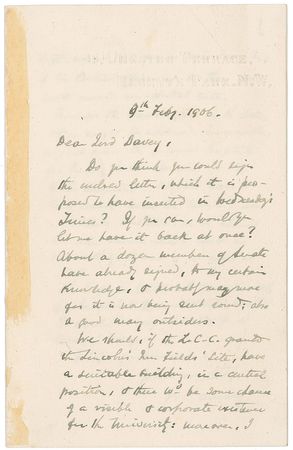 9th Feby. 1906.
Dear Lord Davey,
Do you think you could sign
the enclosed letter, which it is pro-
posed to have inserted in Wednesday's
Times? If you can, would you
let me have it back at once?
About a dozen members of Senate
have already signed, to my certain
knowledge, & probably many more
for it is now being sent round; also
a good many outsiders.
We should, if the L.C.C. grants
the Lincoln's Inn Fields' Site, have
a suitable building, in a central
position, & there wd. be some chance
of a visible & corporate existence
for the University: moreover, I